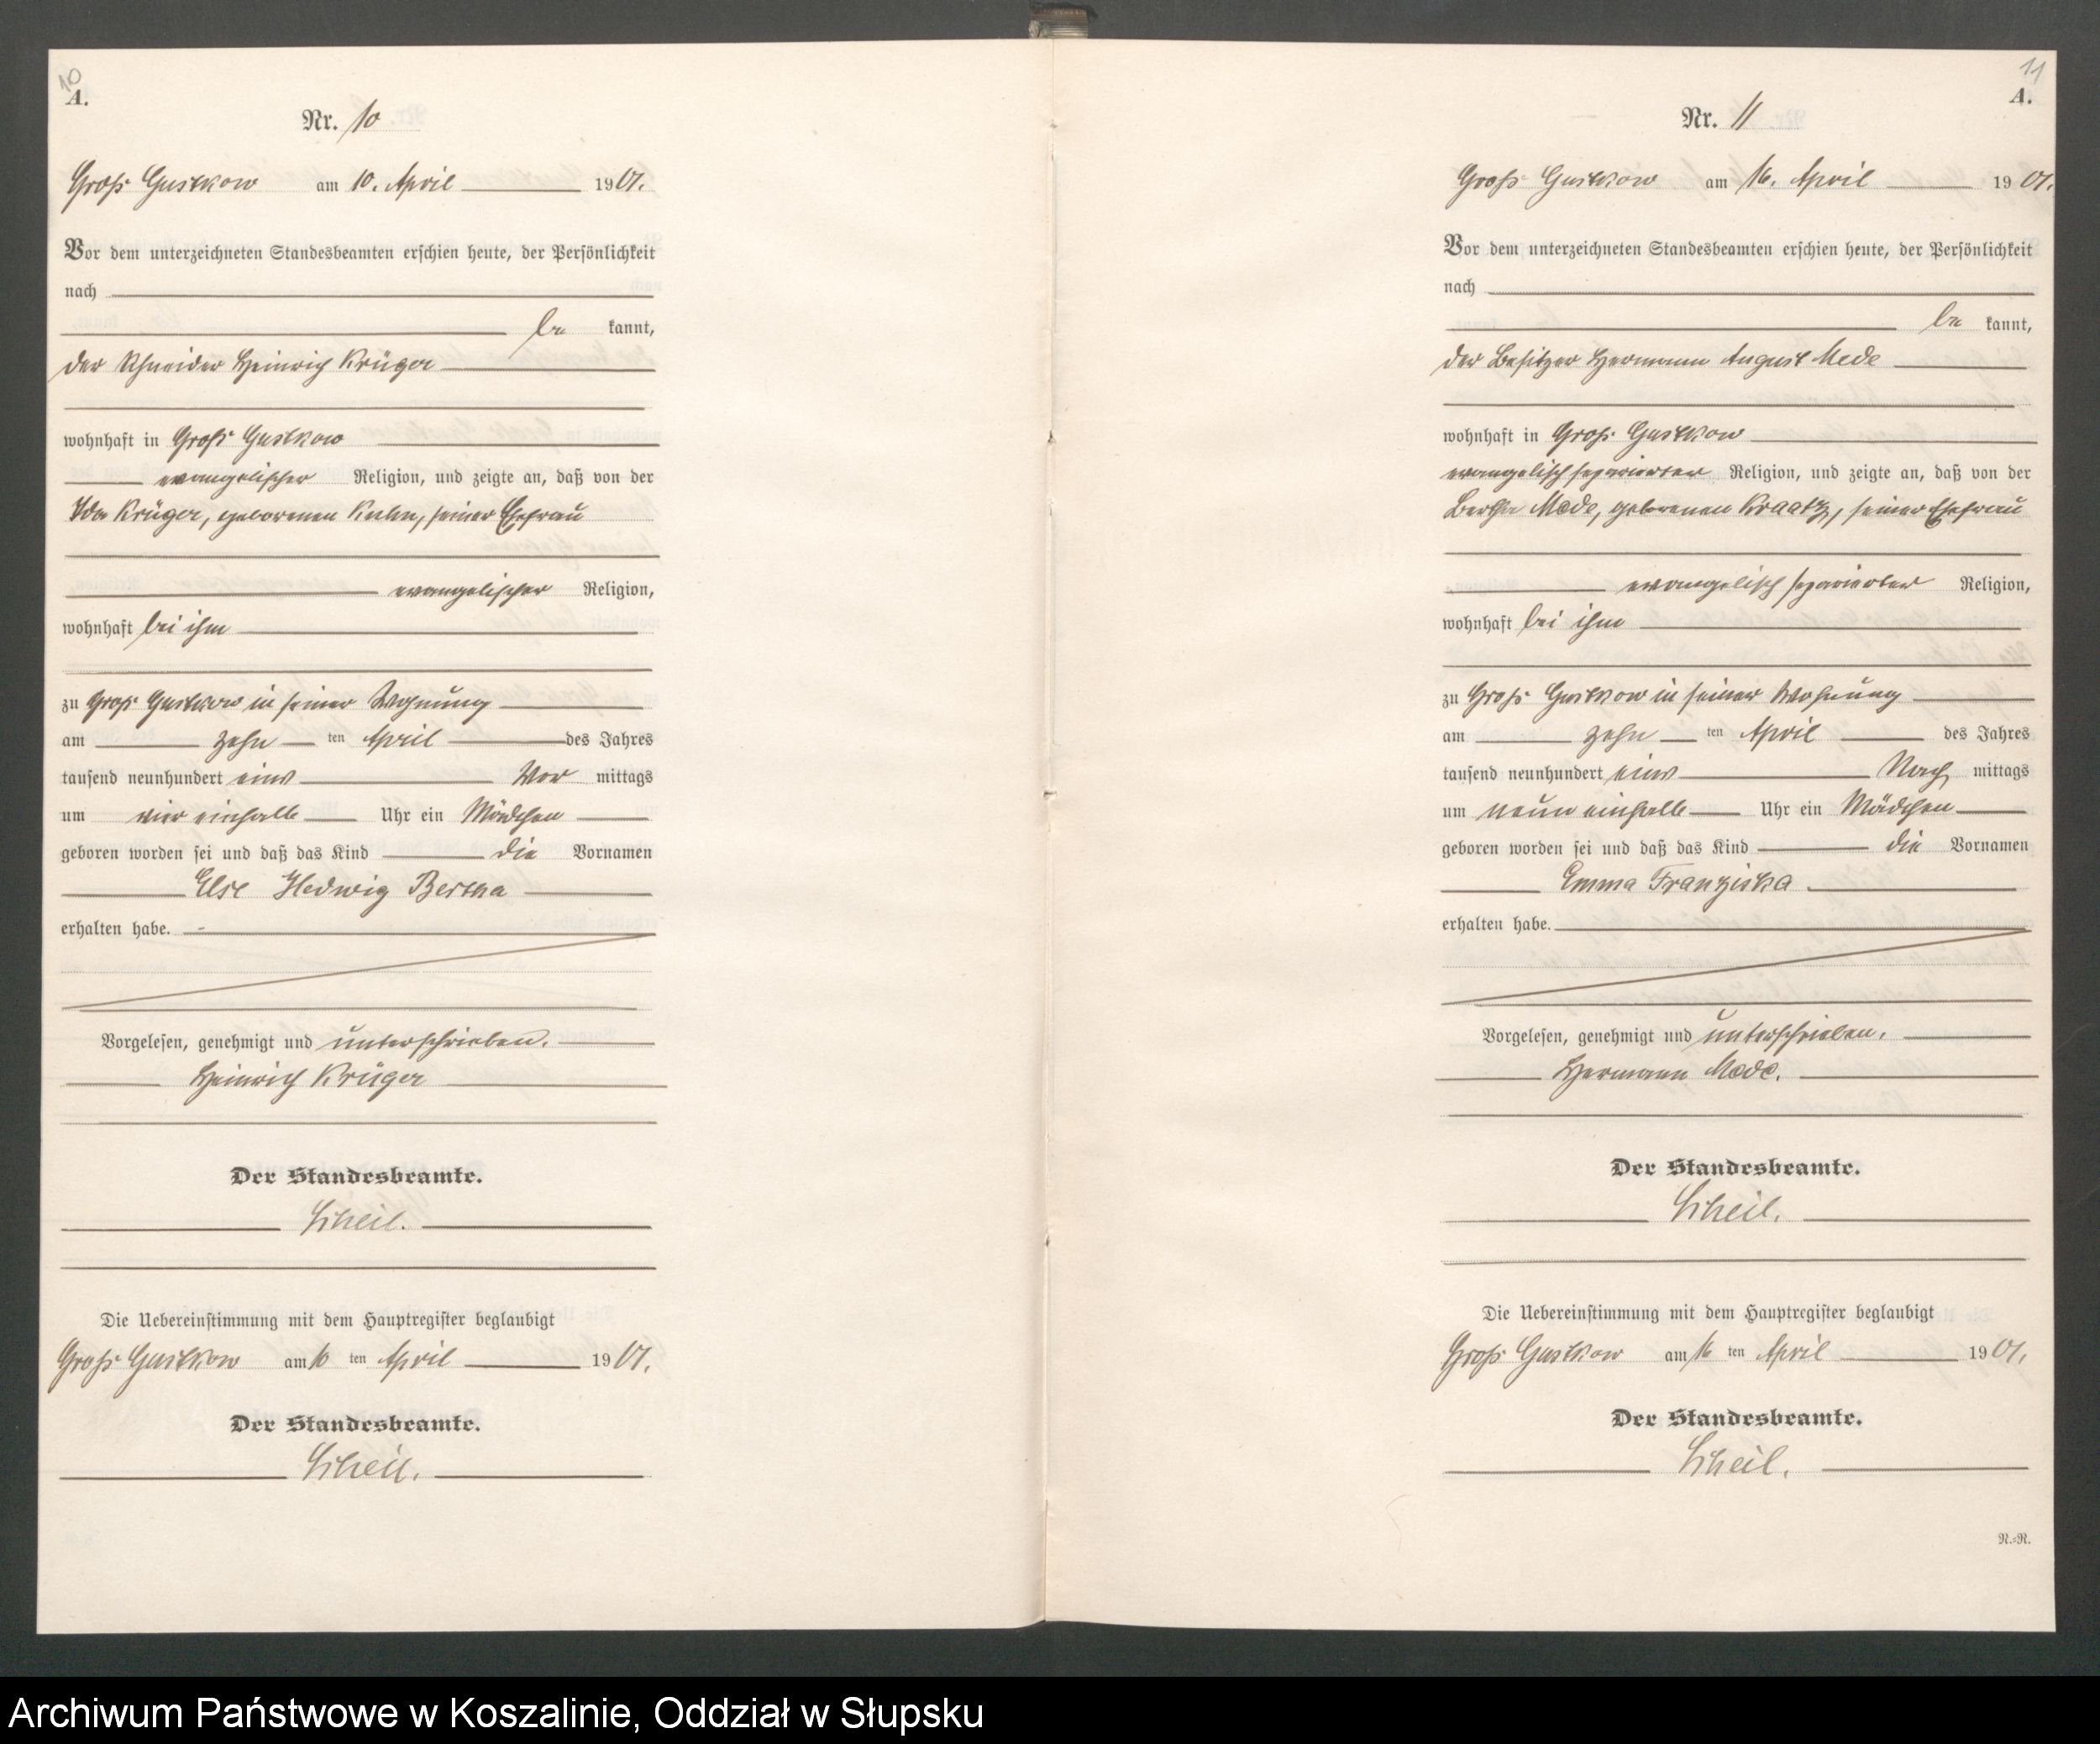 10
A.
Nr. 10
Groß Gustkow am 10. April 1901.
Vor dem unterzeichneten Standesbeamten erschien heute, der Persönlichkeit
nach
be kannt,
der Schneider Heinrich Krüger
wohnhaft in Groß Gustkow
evangelischer Religion, und zeigte an, daß von der
Ida Krüger, geborenen Kuhn, seiner Ehefrau
evangelischer Religion,
wohnhaft bei ihm
zu Groß Gustkow in seiner Wohnung
am zehn ten April des Jahres
tausend neunhundert eins Vor mittags
um vier einhalb Uhr ein Mädchen
geboren worden sei und daß das Kind die Vornamen
Else Hedwig Bertha
erhalten habe.
Vorgelesen, genehmigt und unterschrieben.
Heinrich Krüger
Der Standesbeamte.
Scheil.
Die Uebereinstimmung mit dem Hauptregister beglaubigt
Groß Gustkow am 10 ten April 1901.
Der Standesbeamte.
Scheil.
11
A.
Nr. 11
Groß Gustkow am 16. April 1901.
Vor dem unterzeichneten Standesbeamten erschien heute, der Persönlichkeit
nach
be kannt,
der Besitzer Hermann August Mede
wohnhaft in Groß Gustkow
evangelisch separierter Religion, und zeigte an, daß von der
Bertha Mede, geborenen Kraatz, seiner Ehefrau
evangelisch separierter Religion,
wohnhaft bei ihm
zu Groß Gustkow in seiner Wohnung
am zehn ten April des Jahres
tausend neunhundert eins Nach mittags
um neun einhalb Uhr ein Mädchen
geboren worden sei und daß das Kind die Vornamen
Emma Franziska
erhalten habe.
Vorgelesen, genehmigt und unterschrieben.
Hermann Mede.
Der Standesbeamte.
Scheil.
Die Uebereinstimmung mit dem Hauptregister beglaubigt
Groß Gustkow am 16 ten April 1901.
Der Standesbeamte.
Scheil.
N.=R.
Archiwum Państwowe w Koszalinie, Oddział w Słupsku